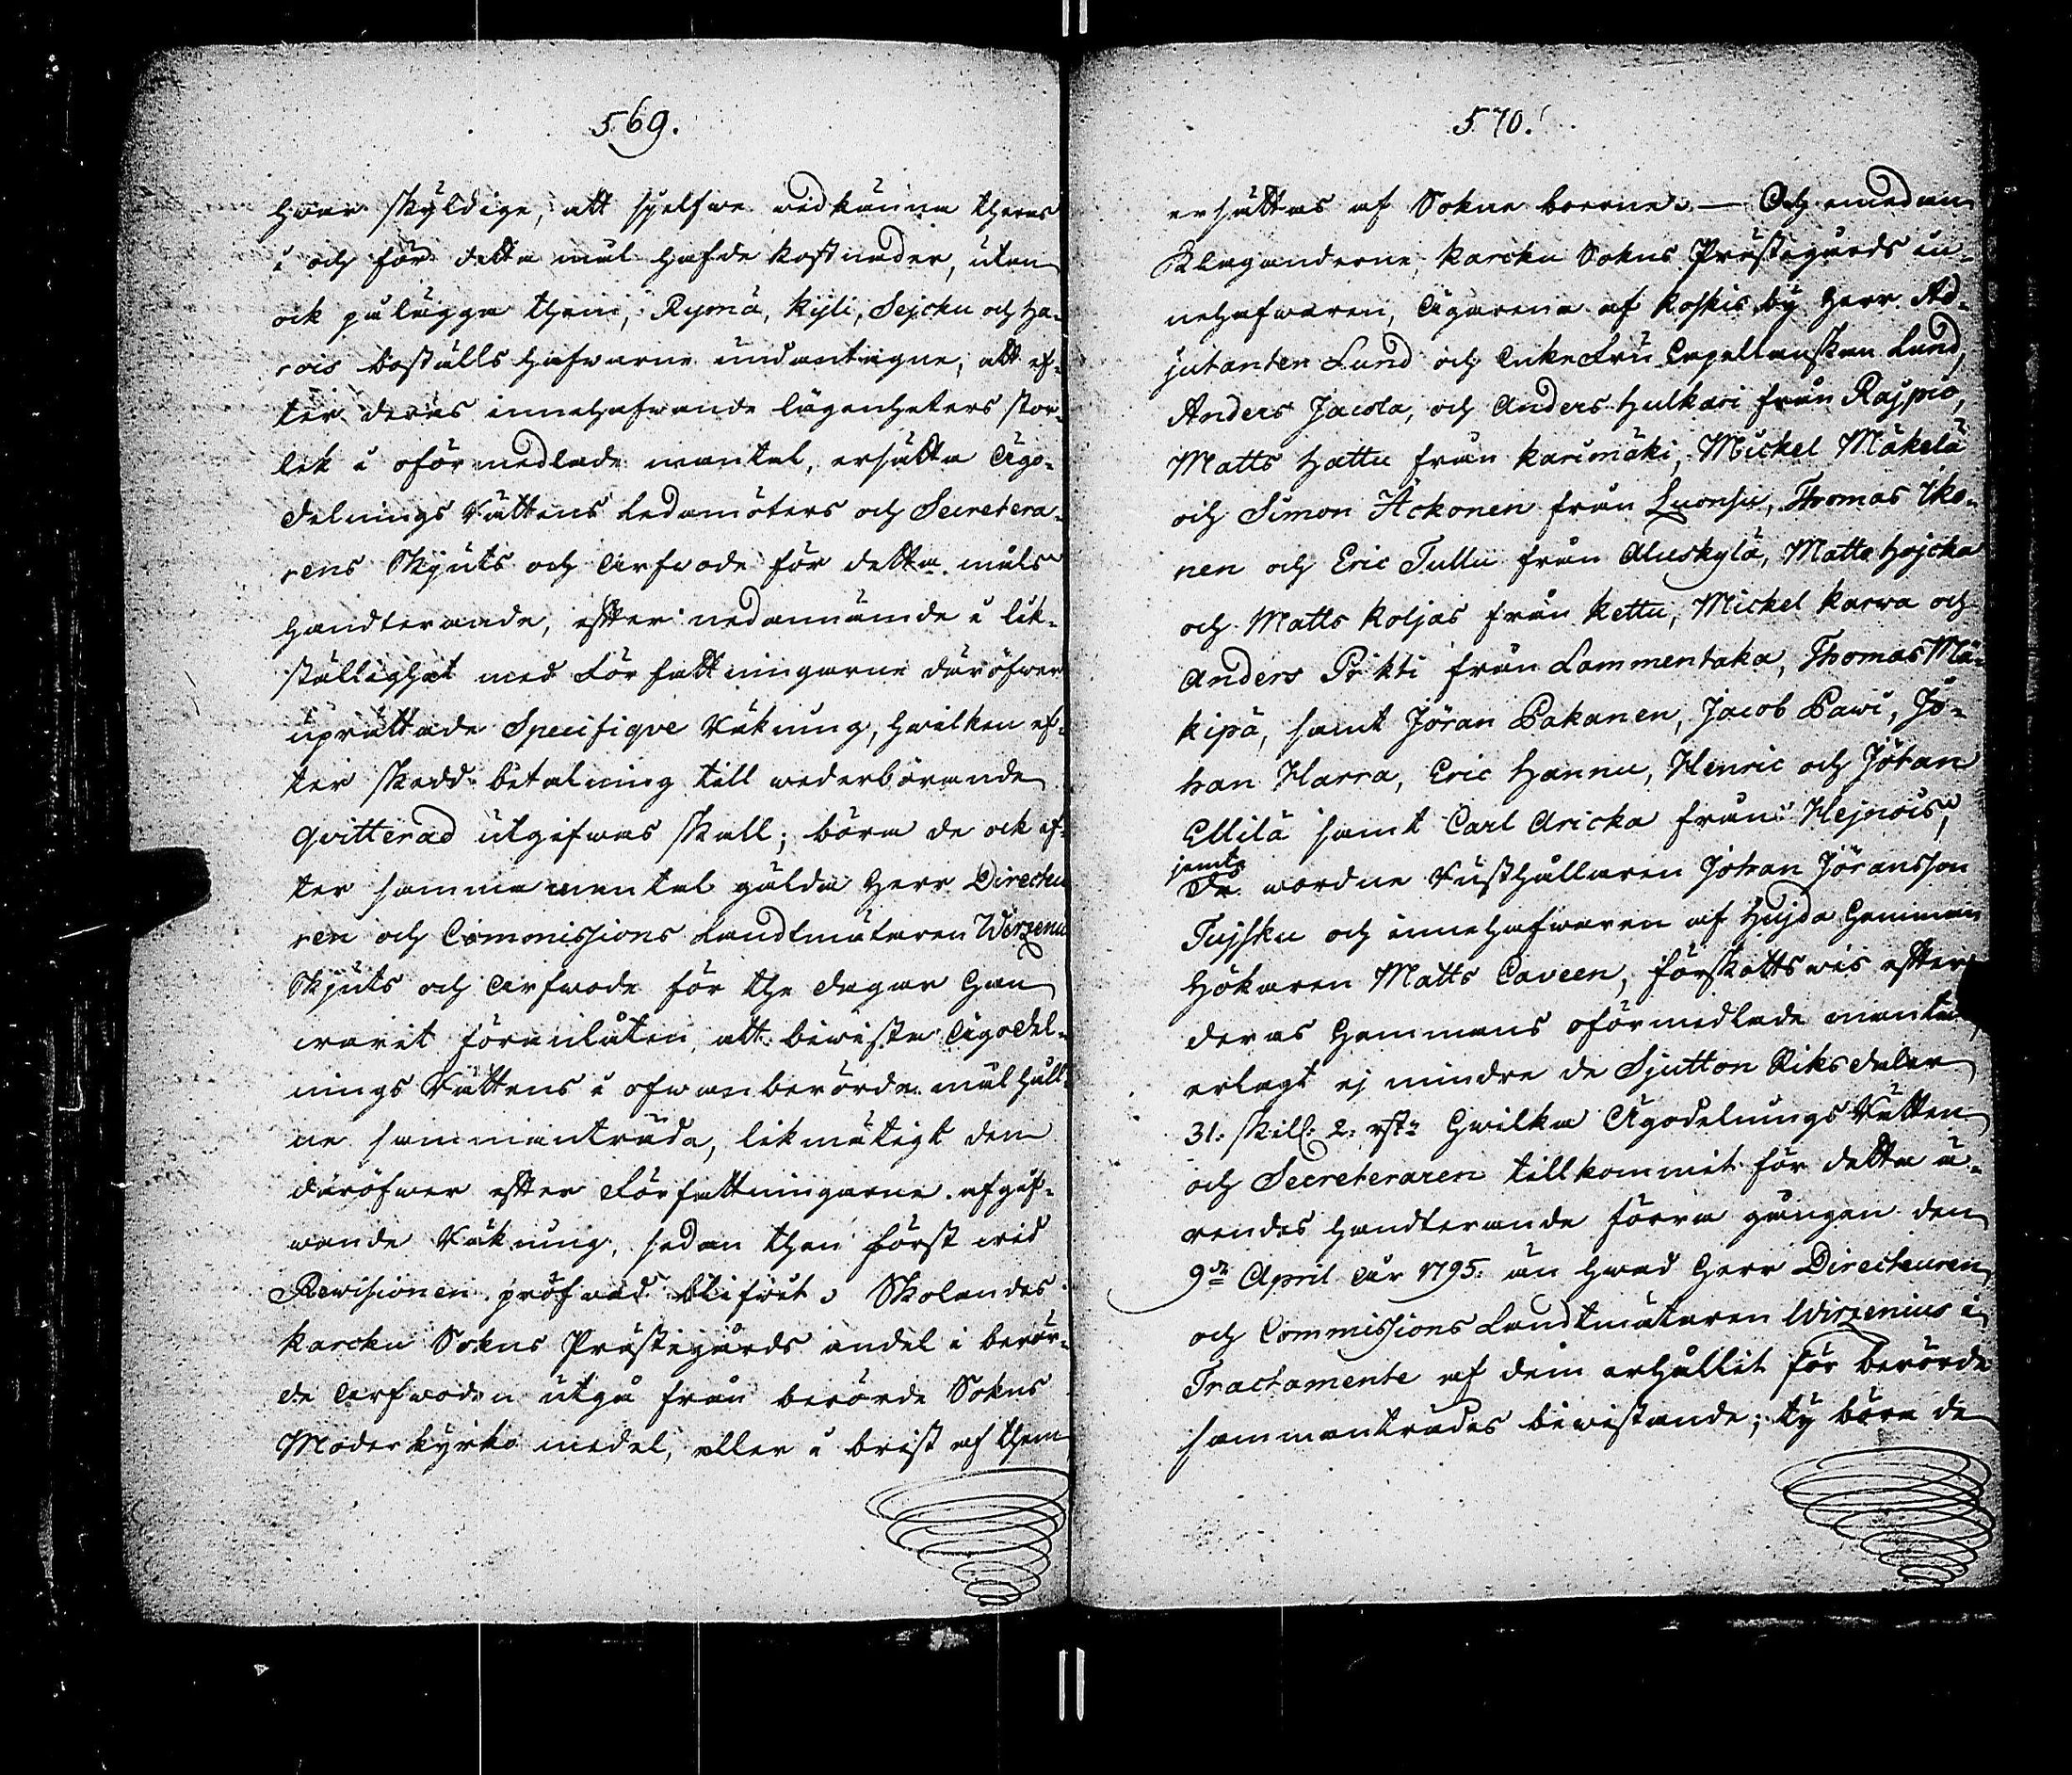 569.
hwar skyldige, att sjelfwe widkänna theras
i och för detta mål hafde kostnader, utan
ock pålägga them, Rymä, Kyli, Sejcku och Ha-
rois boställs hafwarne undantagne, att ef-
ter deras innehafwande lägenheters stor-
lek i oförmedlade mantal, ersätta Ägo-
delnings Rättens Ledamöters och Secretera-
rens Skjuts och Arfwode för detta måls
handterande, efter nedannämde i lik-
ställighet med Författningarne däröfwer
uprättade Specifiqve Räkning, hwilken ef-
ter skedd betalning till wederbörande
qvitterad utgifwas skall; böra de ock ef-
ter samma mantal gälda Herr Directeu
ren och Commissions Landtmätaren Wirzeniu
Skjuts och Arfwode för the dagar Han
warit föranlåten, att biwista Ägodel-
nings Rättens i ofwanberörde mål håll-
ne sammanträde, likmätigt dem
däröfwer efter Författningarne afgif-
wande Räkning, sedan then först wid
Revisionen pröfwad blifwit. Skolandes
Karcku Sokns Prästegårds andel i berör-
de Arfwoden utgå från berörde Sokns
Moderkyrko medel, eller i brist af them
570.
ersättas af Sokne boerne. — Och emedan
Klaganderne, Karcku Sokns Prästegårds in-
nehafwaren, Ägarena af Koskis by Herr Ad-
jutanten Lund och Enke Fru Capellanskan Lund,
Anders Jacola, och Anders Hulkari från Rajpio,
Matts Hattu från Karimäki, Mickel Mäkelä
och Simon Äckonen från Luonsu, Thomas Iko-
nen och Eric Tullu från Aluskylä, Matts Hojcka
och Matts Koljas från Kettu, Mickel Karwa och
Anders Pirkti från Lammentaka, Thomas Mä-
kipä, samt Jöran Pakanen, Jacob Pawi, Jo-
han Harra, Eric Hannu, Henric och Johan
Ellilä samt Carl Aricka från Hejnois,
jemte
De wordne Rusthållaren Johan Jöransson
Tujsku och innehafwaren af Hujda Hemman
Hökaren Matts Caveen, förskottswis efter
deras Hemmans oförmedlade mantal
erlagt ej mindre de Sjutton Riksdaler
31. skill: 2. rst: Hwilka Ägodelnings Rätten
och Secreteraren tillkommit för detta ä-
rendes handterande förra gången den
9de April År 1795. än hwad Herr Directeuren
och Commissions Landtmätaren Wirzenius i
Tractamente af dem erhållit för berörde
sammanträdes biwistande; ty böra de